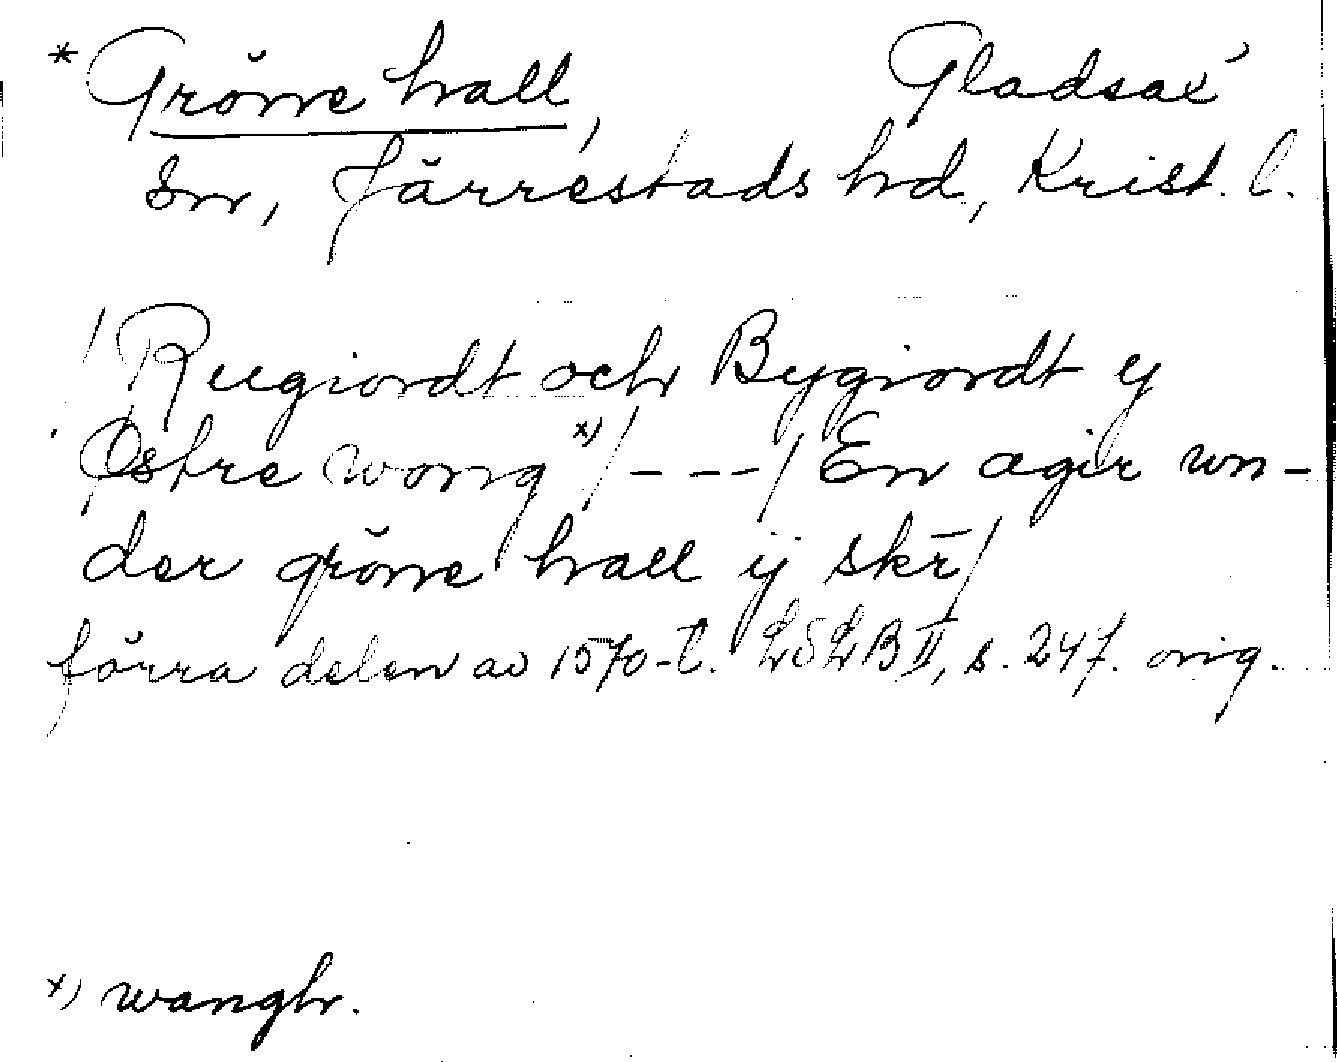 * Grönne hall, Gladsax
sn, Järrestads hd, Krist. l.
/ Rugiordt och Bygiordt y
Østre wong x) / - - - / En agir un-
der grönne hall ij skr̄ /
förra delen av 1570-t. LSLB II, s. 247. orig.
x) wangh.